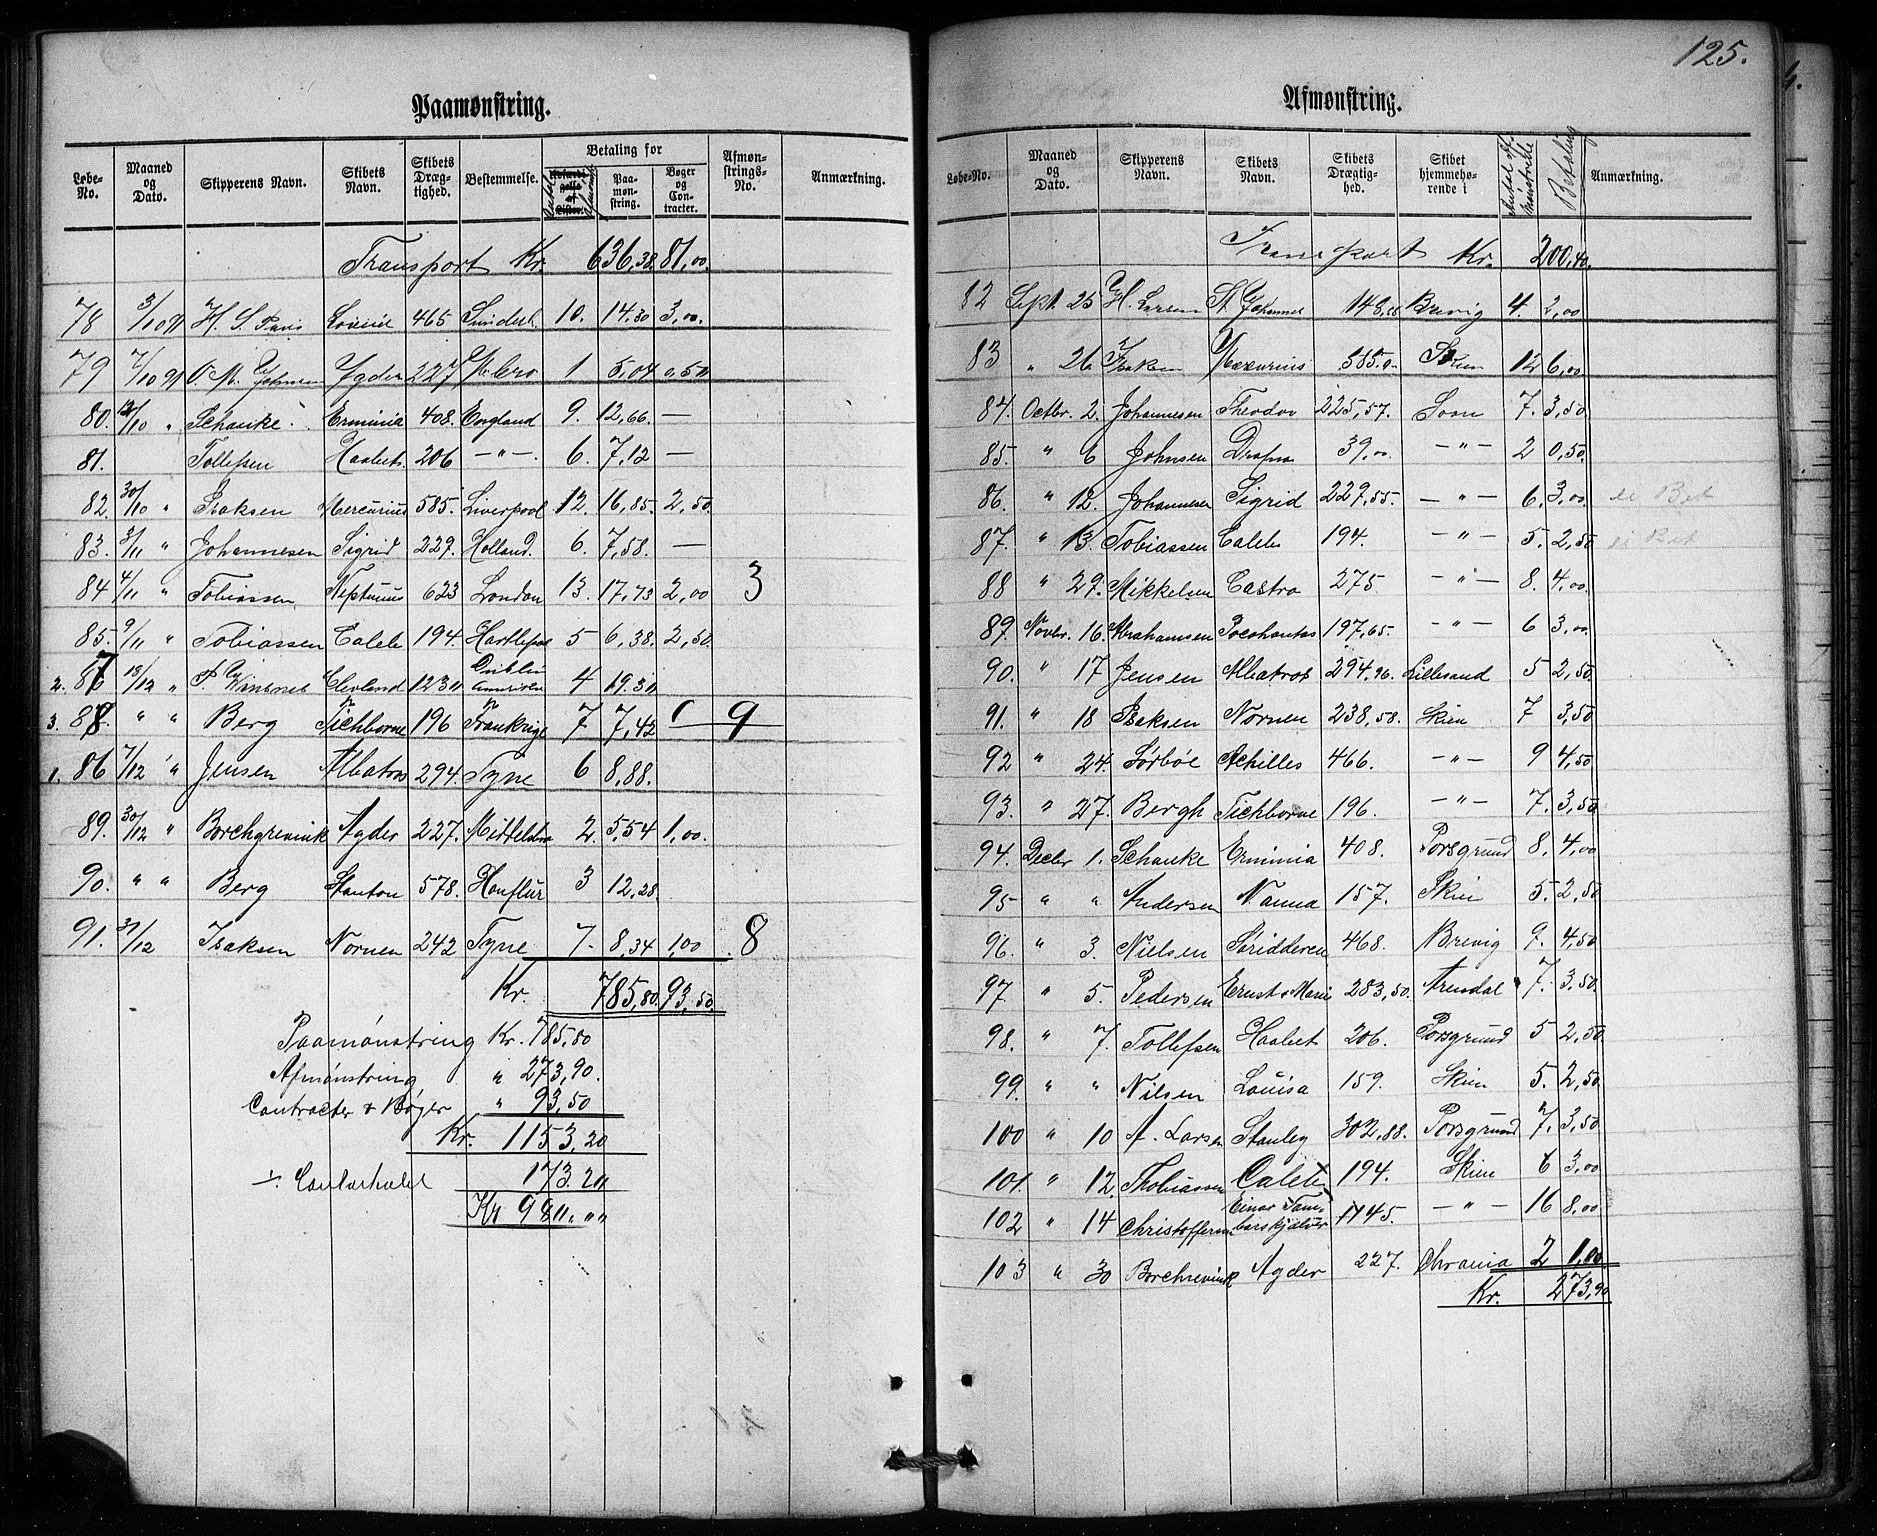 125.
Paamønstring.
Løbe-No. Maaned og Dato. Skipperens Navn. Skibets Navn. Skibets Dræg-tighed. Bestemmelse. Betaling for Paa-møn-string. Bøger og Con-tracter. Afmøn-strings-No. Anmærkning.
Transport Kr. 636,38. 81,00.
78 3/10 91 H. S. Paus 465 Sunderl. 10. 14.30 3,00.
79 7/10 91 O. M. Johnsen Agder 227 1 5,04 0,50
80. /10 " Schanke Erminia 408. England 9. 12,66. —
81. Tollefsen Haabet 206 —"— 6. 7,12 —
82. 30/10 " Isaksen Mercurius 585. Liverpool 12. 16,85. 2,50.
83. 3/11 " Johannesen Sigrid 229. Holland. 6. 7,58. —
84 4/11 " Tobiassen Neptunus 623 London 13. 17,73 2,00 3
85. 9/11 " Tobiassen Caleb 194. Hartlepool 5 6,38. 2,50.
2. 87 /12 " P. Winsnes Clevland 1230 Dublin 4 19.30
3. 88. " " Berg Tichborne 196 Frankrige 7 7,42 9
1. 86 7/12 " Jensen Albatros 294. Tyne 6 8,88.
89. 30/12 " Borchgrevink Agder 227. 2. 5,54 1,00.
90. " " Berg Stanton 578. Honflur 3 12,28.
91. 31/12 Isaksen Nornen 242 Tyne 7. 8,34 1,00 8
Kr. 785,80. 93,50.
Paamønstring Kr. 785,80
Afmønstring " 273,90.
Contracter & Bøger " 93,50
Kr. 1153,20
÷ Contorholdt 173.20
Kr 980."
Afmønstring.
Løbe-No. Maaned og Dato. Skipperens Navn. Skibets Navn. Skibets Drægtig-hed. Skibet hjemmehø-rende i Antal af-mønstrede Betaling Anmærkning.
Transport Kr. 200,40.
82 Sept. 25 H. Larsen St. Johannes Brevig 4. 2,00
83 " 26 Isaksen Mercurius 585. Skien 12 6,00
84. Octbr. 2. Johannesen Theodor 225,57. Soon 7. 3,50
85. " 6 Johnsen Drafna 39.00 —"— 2 0,50.
86. " 12. Johannesen Sigrid 229,55. —"— 6. 3,00. ei Bet
87. " 13. Tobiassen Caleb 194. —"— 5. 2,50 ei Bet
88 " 29. Mikkelsen Castro 275 —"— 8. 4,00.
89. Novbr. 16. Abrahamsen Pocohontas 197,65. —"— 6 3,00.
90. " 17 Jensen Albatros 294.96. Lillesand 5 2,50.
91. " 18 Isaksen Nornen 238,58. Skien 7 3,50
92 " 24. Sørbøe Achilles 466. —"— 9 4,50
93. " 27. Bergh Tichborne 196. —"— 7. 3,50
94. Decbr 1. Schanke Erminia 408. Porsgrund 8. 4,00
95 " " Andersen Nanna 157. Skien 5. 2,50
96. " 3. Nielsen 468. Brevig 9. 4,50
97 " 5. Pedersen Ernst & Marie 283,50. Arendal 7. 3,50.
98. " 7. Tollefsen Haabet 206. Porsgrund 5 2,50.
99. " " Nilsen Louisa 159. Skien 5. 2,50
100 " 10 A. Larsen Stanley 302,88. Porsgrund 7. 3,50
101. " 12. Thobiassen Caleb 194. Skien 6 3,00
102 " 14 Christoffersen Einar Tam-barskjelver 1145. —"— 16 8,00
103 " 30 Borchrevink Agder 227. Chrania 2 1,00
Kr. 273,90